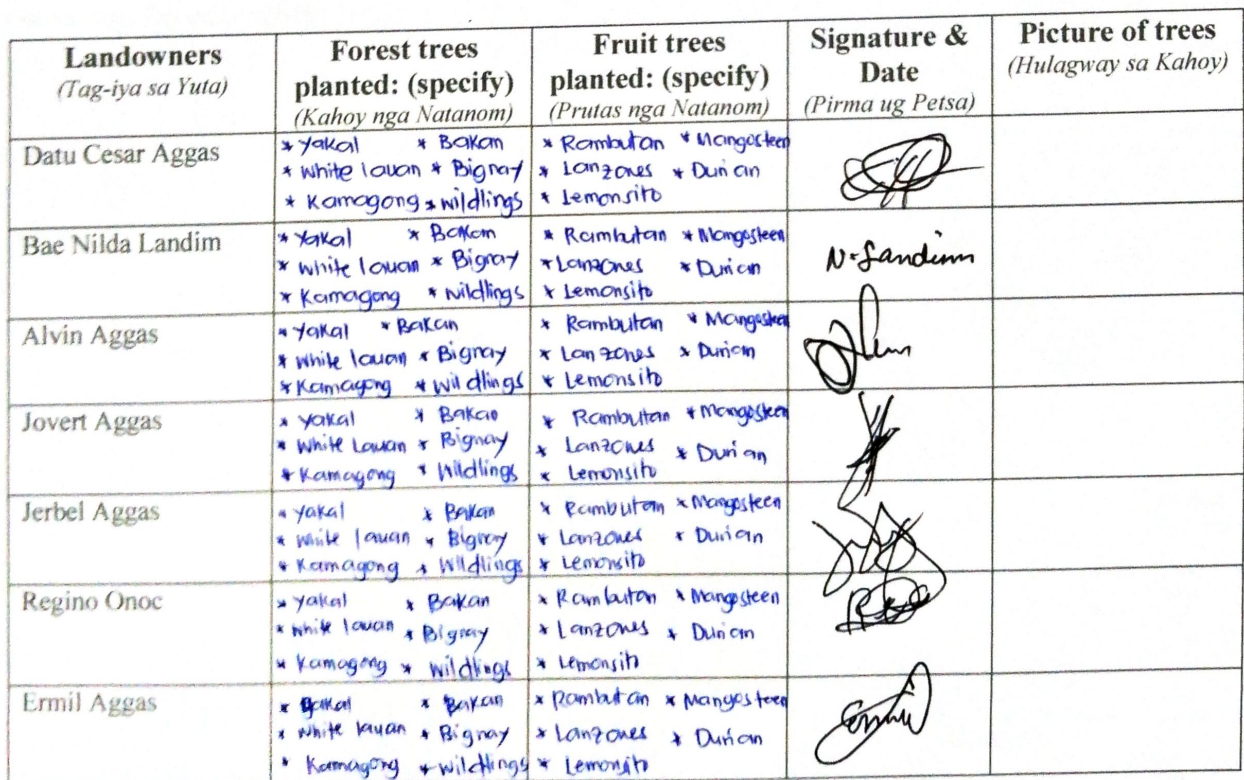 Landowners
(Tag-iya sa Yuta)
Forest trees
planted: (specify)
(Kahoy nga Natanom)
Fruit trees
planted: (specify)
(Prutas nga Natanom)
Signature &
Date
(Pirma ug Petsa)
Picture of trees
(Hulagway sa Kahoy)
Datu Cesar Aggas
* Yakal * Bakan
* White lauan * Bignay
* Kamagong * wildlings
* Rambutan * Mangosteen
* Lanzones * Durian
* Lemonsito
Bae Nilda Landim
* Yakal * Bakan
* White lauan * Bignay
* Kamagong * Wildlings
* Rambutan * Mangosteen
* Lanzones * Durian
* Lemonsito
N. Landim
Alvin Aggas
* Yakal * Bakan
* White lauan * Bignay
* Kamagong * Wildlings
* Rambutan * Mangosteen
* Lanzones * Durian
* Lemonsito
Jovert Aggas
* Yakal * Bakan
* White Lauan * Bignay
* Kamagong * Wildlings
* Rambutan * Mangosteen
* Lanzones * Durian
* Lemonsito
Jerbel Aggas
* Yakal * Bakan
* White lauan * Bignay
* Kamagong * Wildlings
* Rambutan * Mangosteen
* Lanzones * Durian
* Lemonsito
Regino Onoc
* Yakal * Bakan
* White lauan * Bignay
* Kamagong * Wildlings
* Rambutan * Mangosteen
* Lanzones * Durian
* Lemonsito
Ermil Aggas
* Yakal * Bakan
* White lauan * Bignay
* Kamagong * Wildlings
* Rambutan * Mangosteen
* Lanzones * Durian
* Lemonsito